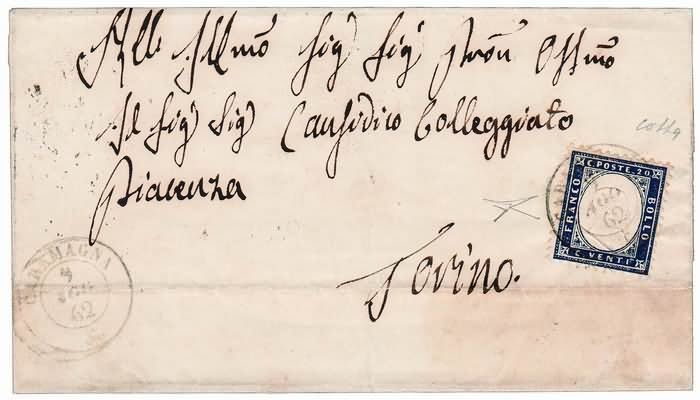 All' Illmo Sig Sig Pron Ossmo
Il Sig Sig Causidico Colleggiato
Piacenza
Torino.
cotta
C. POSTE. 20
FRANCO
BOLLO
C. VENTI
AGO
62
CARAMAGNA
3
AGO
62